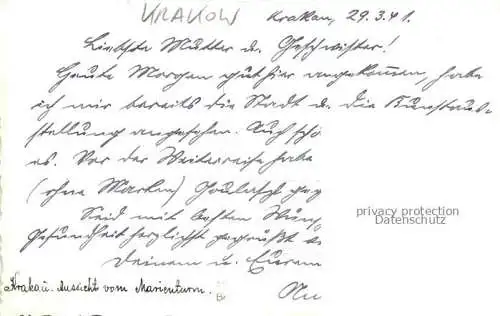 KRAKOW
Krakau, 29.3.41.
Liebste Mutter u. Geschwister!
Heute Morgen gut hier angekommen, habe
ich mir bereits die Stadt u. die Kunstaus-
stellung angesehen. Auch schö
es. Vor der Weiterreise habe
(ohne Marken) Goulasch geg
Seid mit besten Wün
Gesundheit herzlichst gegrüßt
Deinem u. Eurem
privacy protection
Datenschutz
Krakau. Aussicht vom Marienturm.